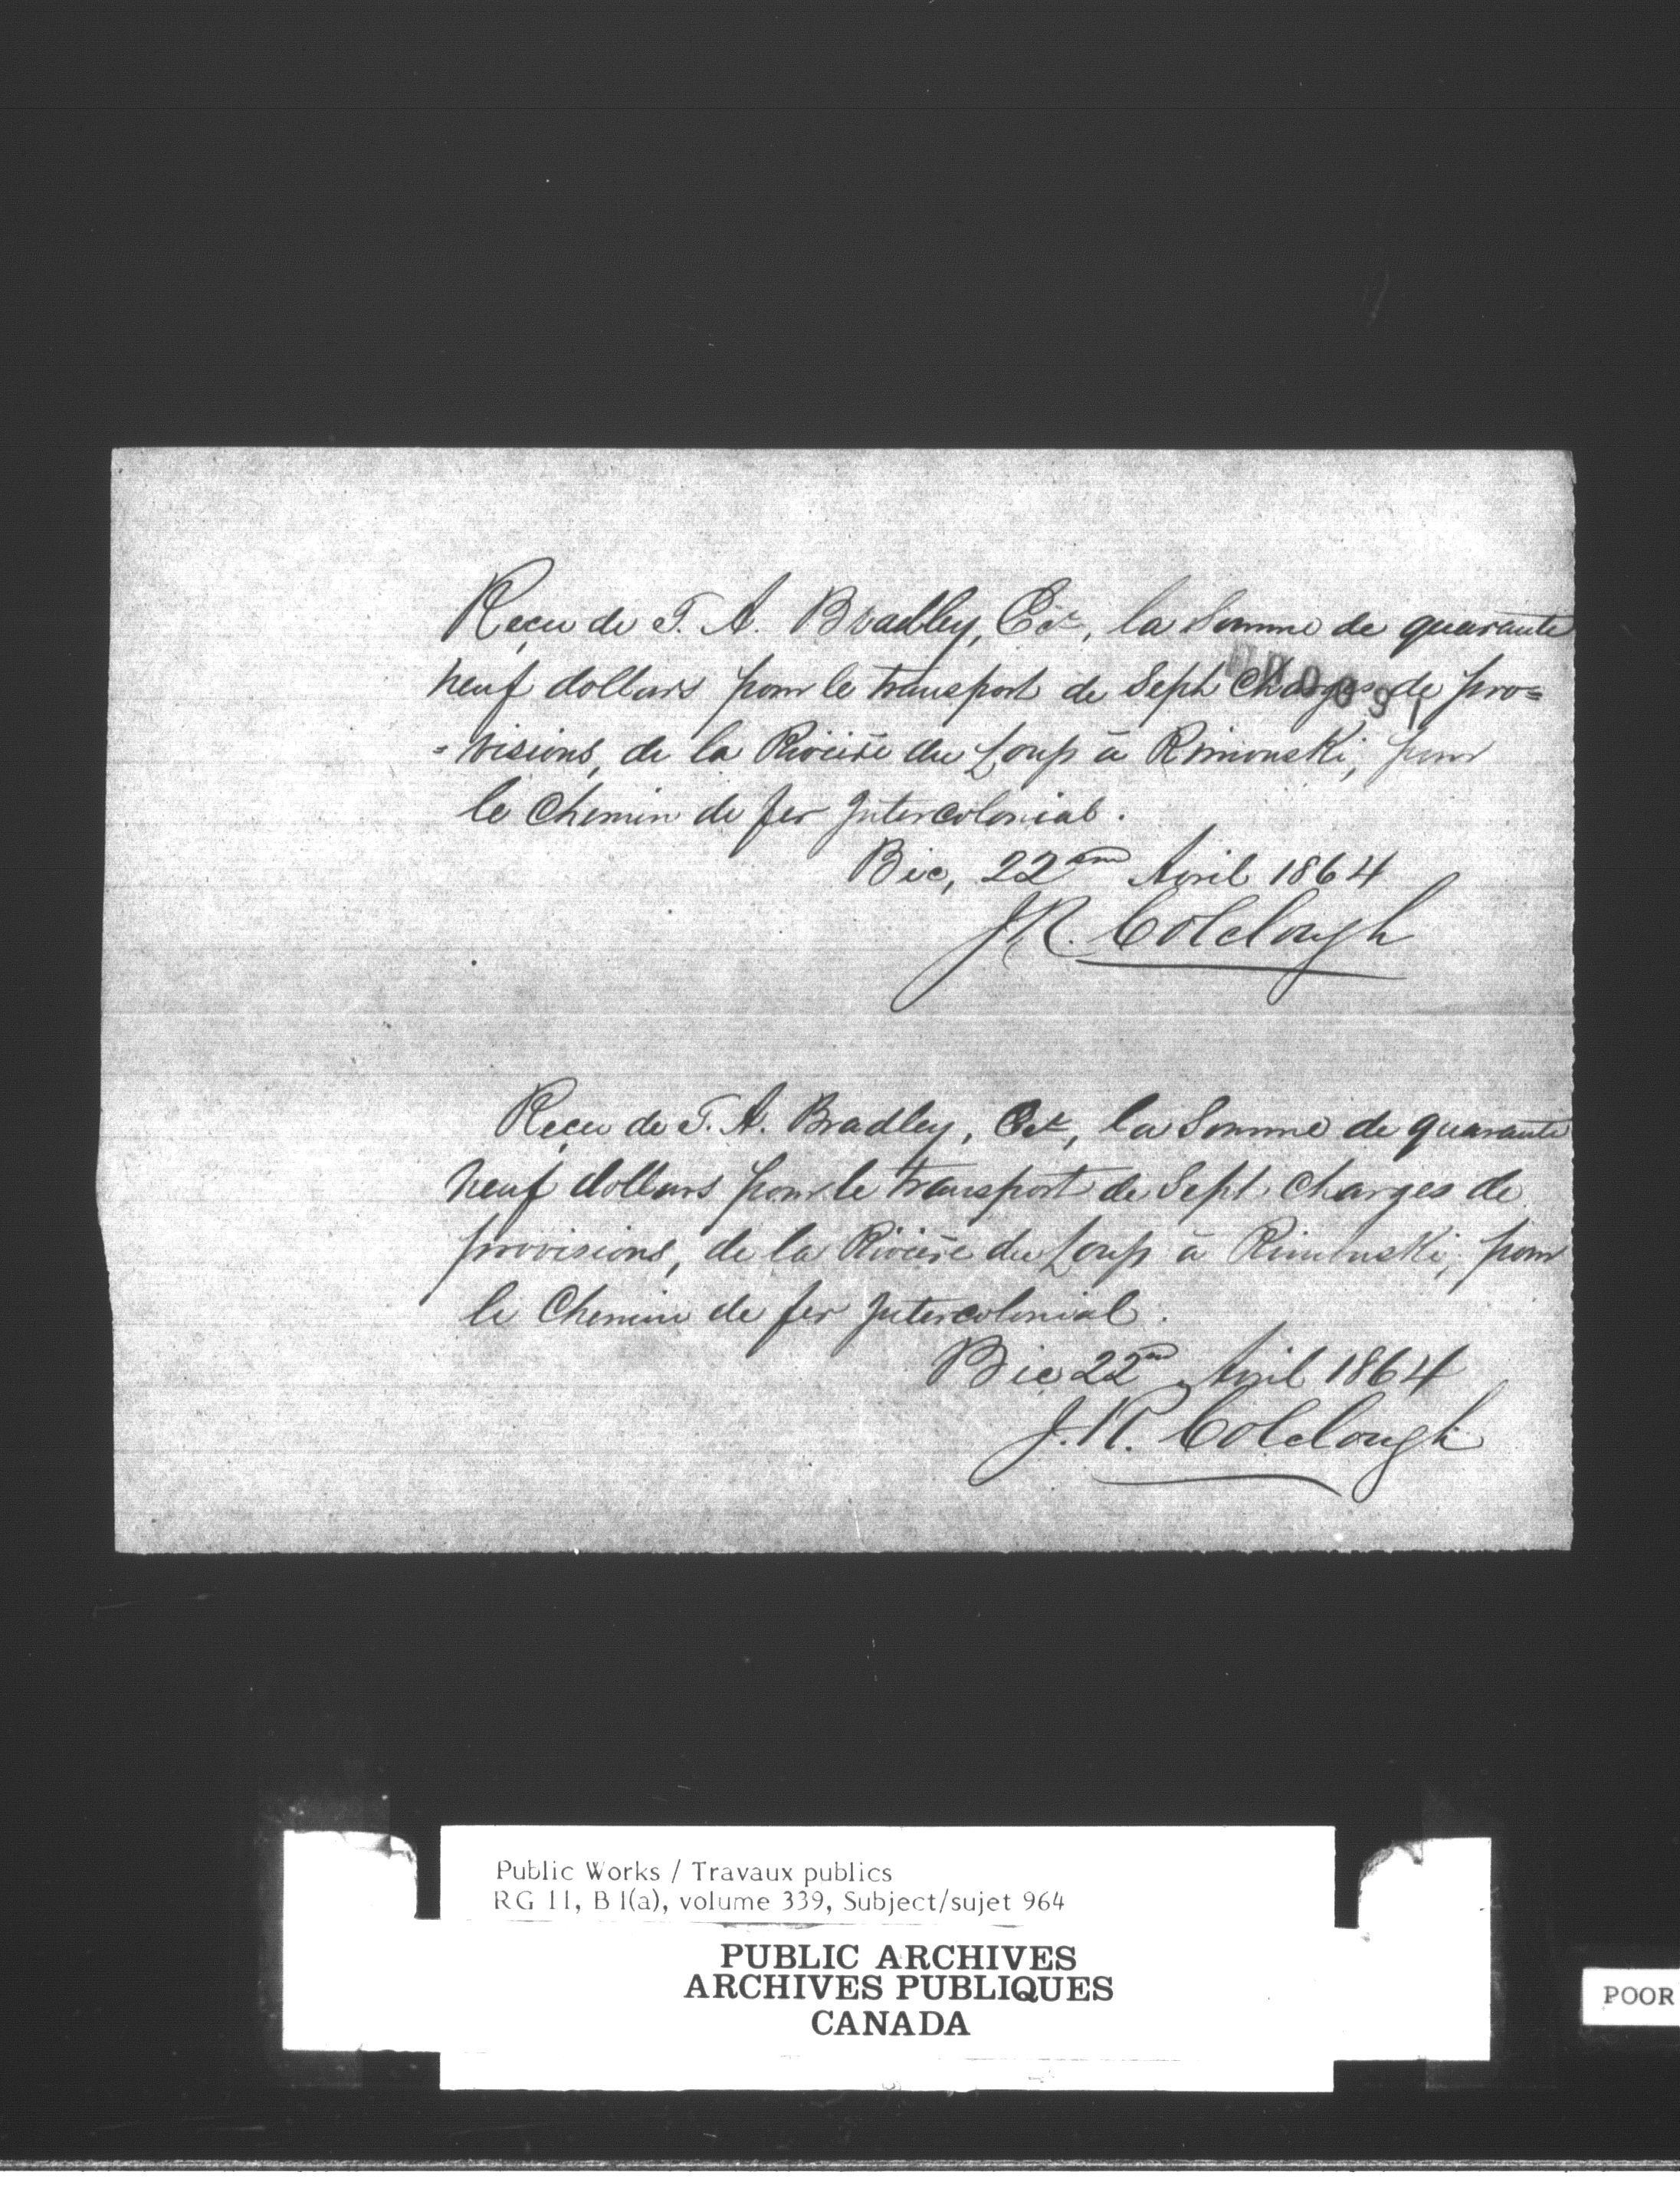 Reçu de T. A. Bradley, Ecr, la Somme de quarante
neuf dollars pour le transport de Sept Charges de pro=
=visions, de la Rivière du Loup à Rimouski, pour
le Chemin de fer Intercolonial.
Bic, 22me Avril 1864
J.R. Colclough
Reçu de T. A. Bradley, Ecr, la Somme de quarante
neuf dollars pour le transport de Sept Charges de
provisions, de la Rivière du Loup à Rimouski, pour
le Chemin de fer Intercolonial.
Bic 22me Avril 1864
J.R. Colclough
Public Works / Travaux publics
RG 11, B 1(a), volume 339, Subject/sujet 964
PUBLIC ARCHIVES
ARCHIVES PUBLIQUES
CANADA
POOR